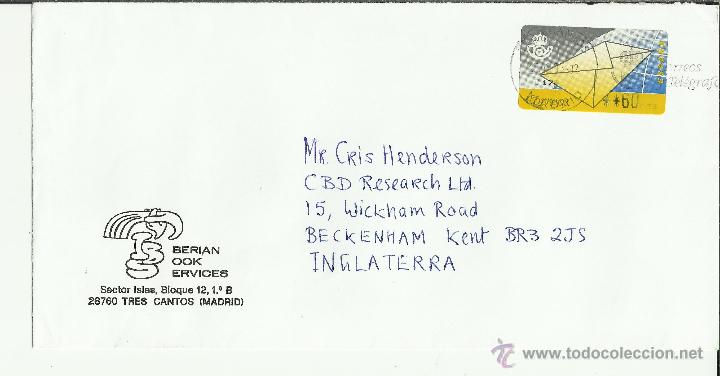 Correos
**60
rreos
Telégrafo
Mr. Cris Henderson
CBD Research Ltd.
15, Wickham Road
BECKENHAM Kent BR3 2JS
INGLATERRA
IBERIAN
BOOK
SERVICES
Sector Islas, Bloque 12, 1.º B
28760 TRES CANTOS (MADRID)
www.todocoleccion.net